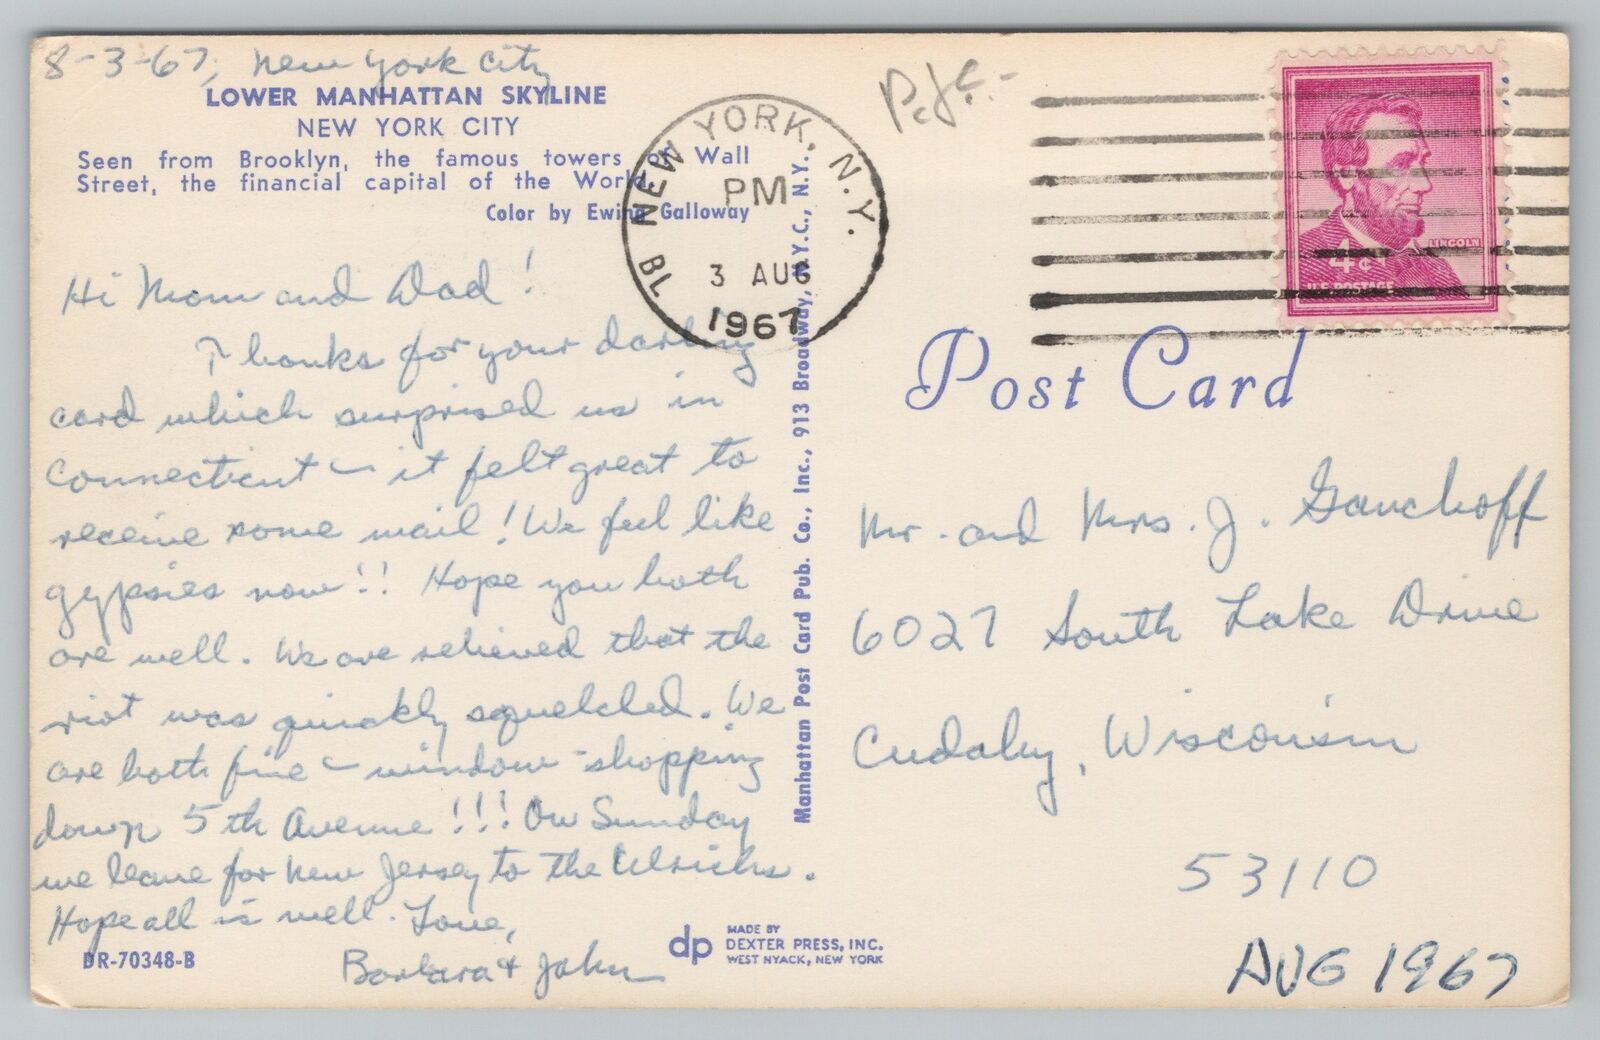 8-3-67, New York City
LOWER MANHATTAN SKYLINE
NEW YORK CITY
Seen from Brooklyn, the famous towers of Wall
Street, the financial capital of the World.
Color by Ewing Galloway
Hi Mom and Dad!
Thanks for your darling
card which surprised us in
Connecticut – it felt great to
receive some mail! We feel like
gypsies now!! Hope you both
are well. We are relieved that the
riot was quickly squelched. We
are both fine – window-shopping
down 5th Avenue!!! On Sunday
we leave for New Jersey to the Ulrichs.
Hope all is well. Love,
Barbara & John
DR-70348-B
dp
MADE BY
DEXTER PRESS, INC.
WEST NYACK, NEW YORK
Manhattan Post Card Pub. Co., Inc., 913 Broadway, N.Y.C., N.Y.
NEW YORK, N.Y.
PM
3 AUG
1967
LINCOLN
4¢
U.S. POSTAGE
Post Card
Mr. and Mrs. J. Ganchoff
6027 South Lake Drive
Cudahy, Wisconsin
53110
AUG 1967